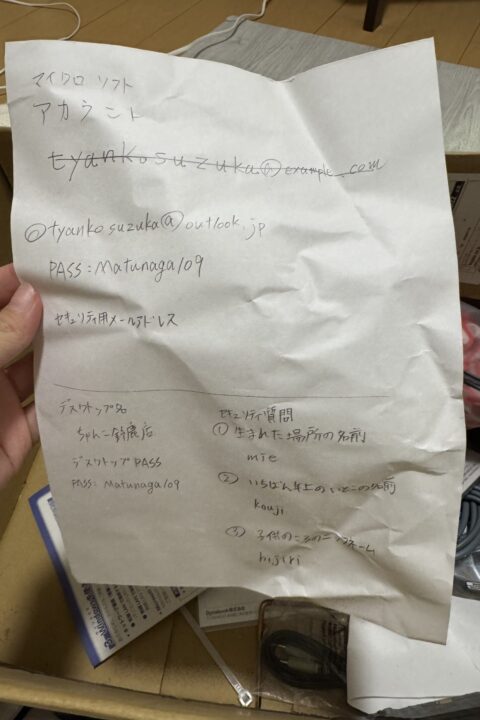 マイクロソフト
アカウント
tyankosuzuka@example.com
◎tyankosuzuka@outlook.jp
PASS:Matunaga109
セキュリティ用メールアドレス
デスクトップ名
ちゃんこ鈴鹿店
デスクトップPASS
PASS:Matunaga109
セキュリティ質問
① 生まれた場所の名前
mie
② いちばん年上のいとこの名前
kouji
③ 子供のころのニックネーム
hijiri
Dynabook株式会社